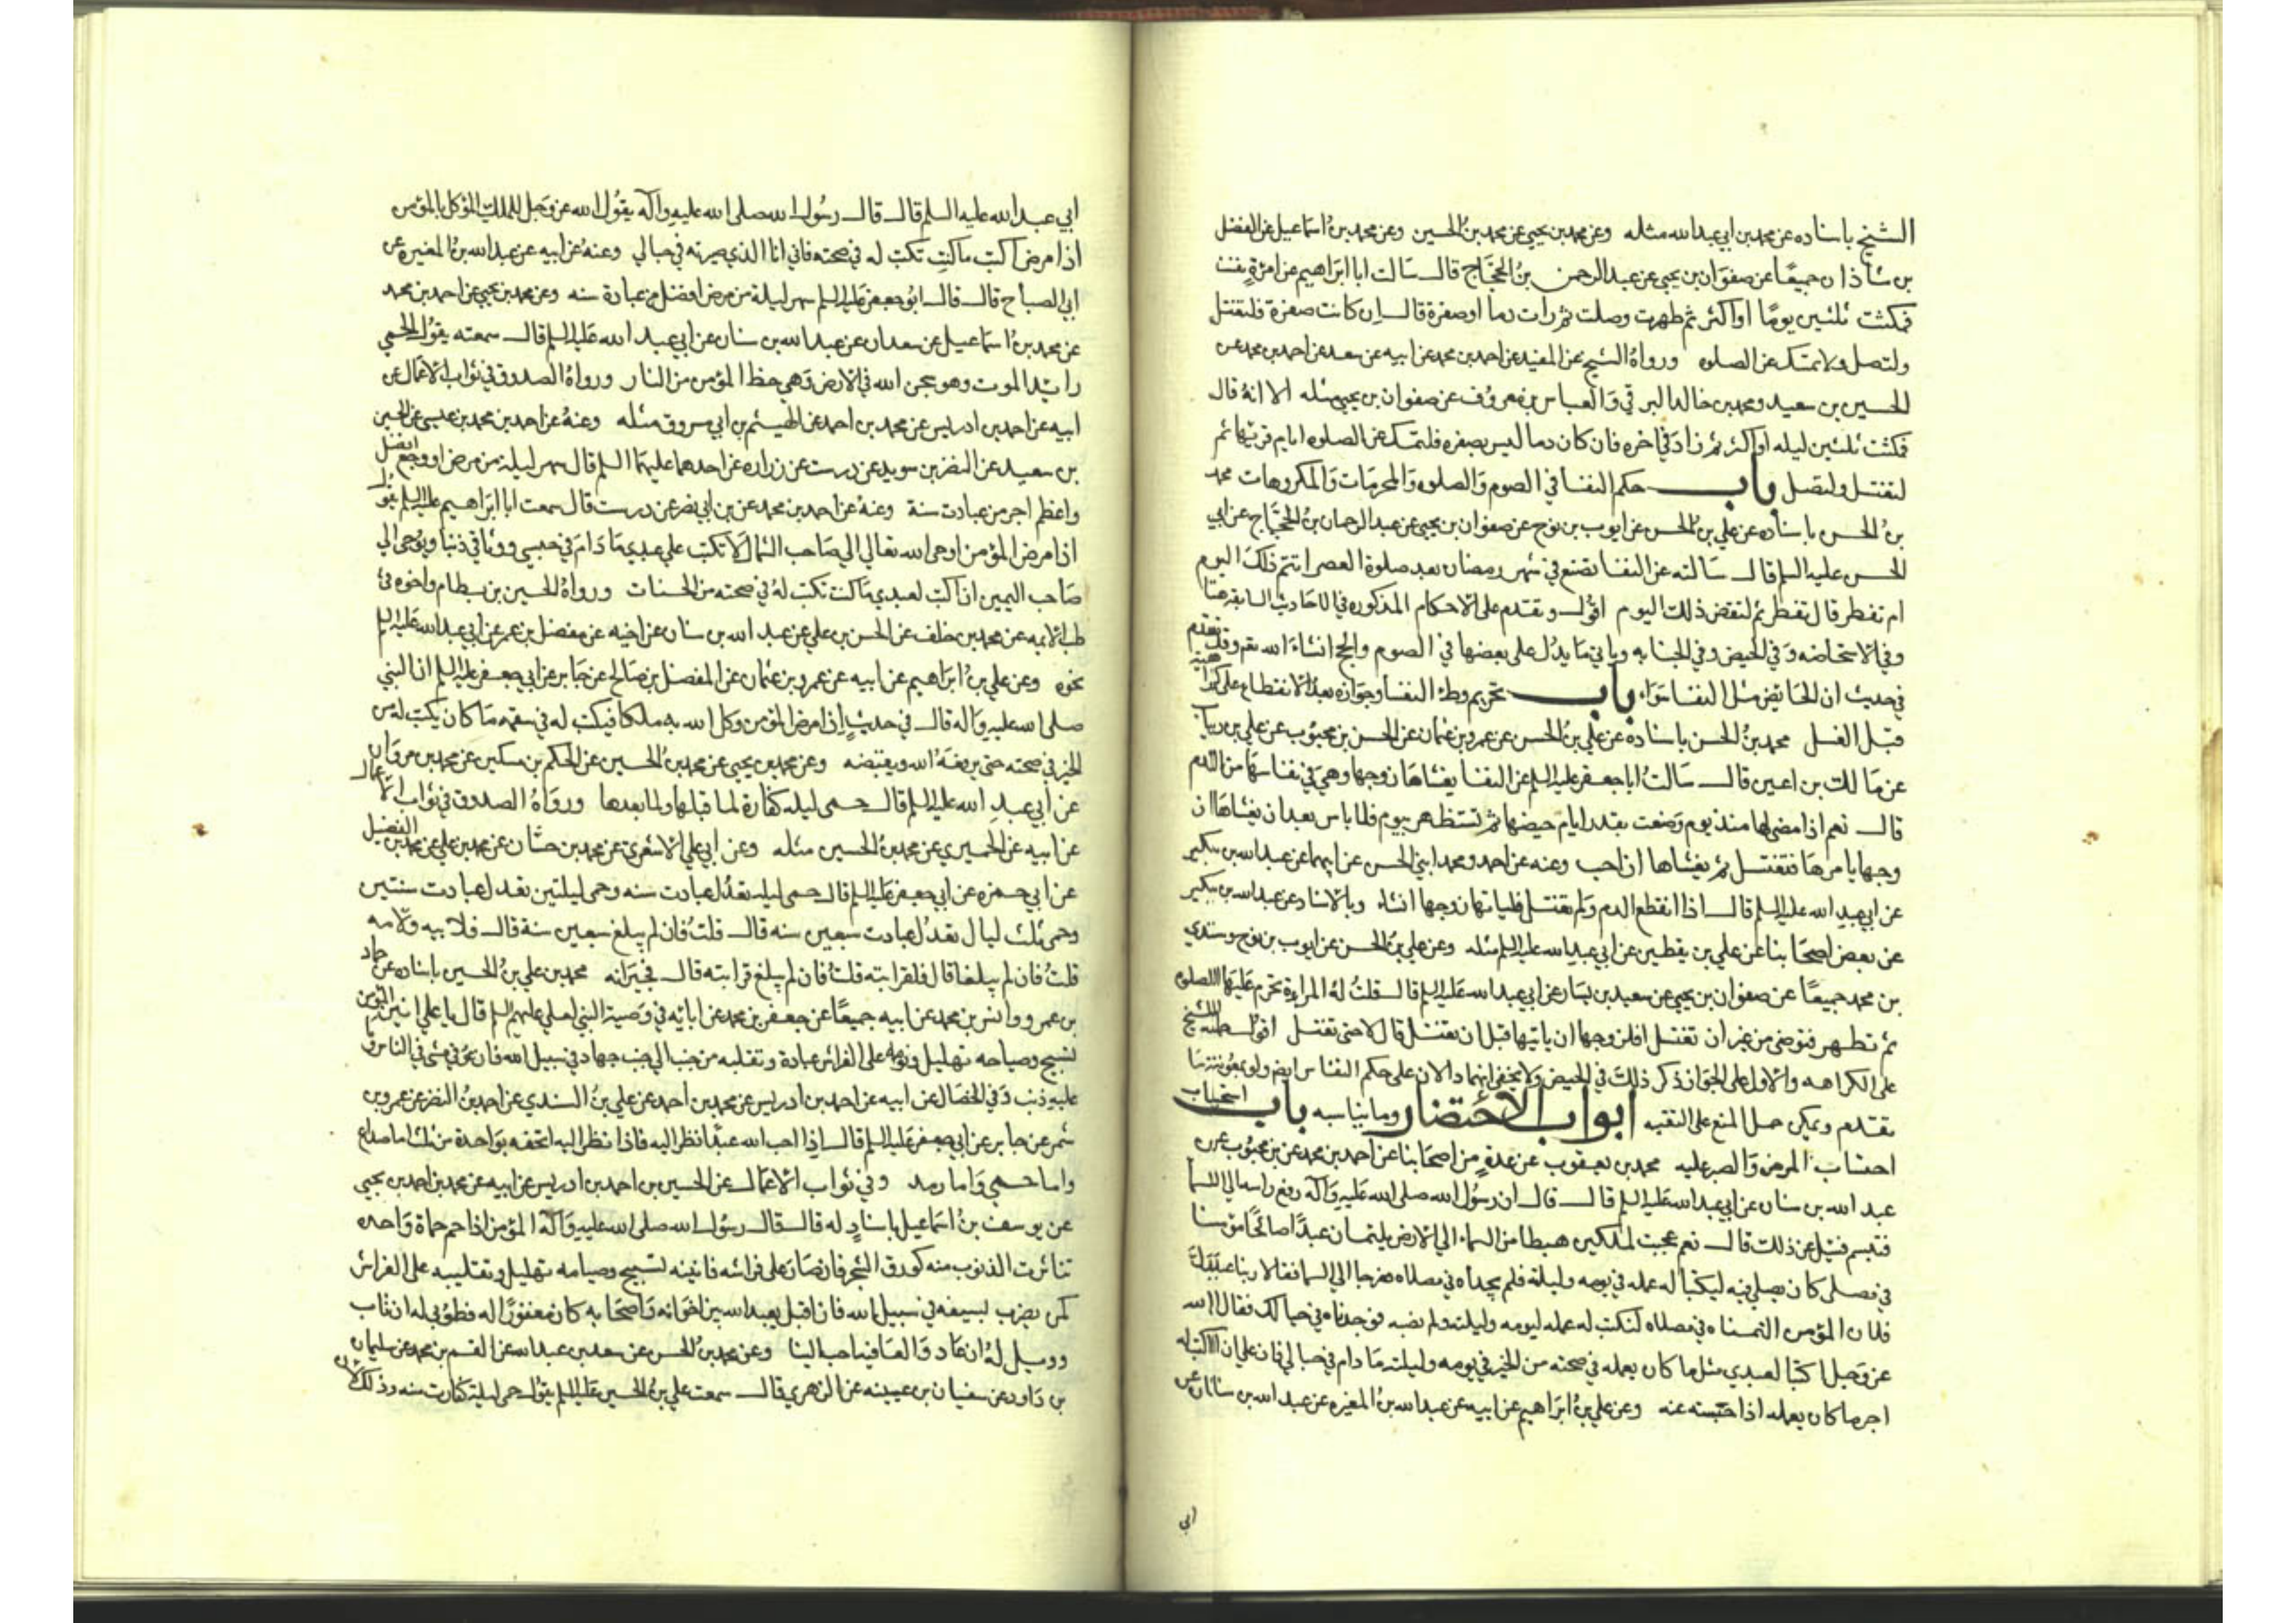 الشيخ باسناده عن محمد بن ابي عبدالله مثله وعن محمد بن يحيى عن محمد بن الحسين وعن محمد بن اسماعيل عن الفضل
بن شاذان جميعًا عن صفوان بن يحيى عن عبدالرحمن بن الحجاج قال سالت ابا ابراهيم عن امرٵة نفست
فمكثت ثلثين يومًا او اكثر ثم طهرت وصلت ثم رات دما او صفرة قال ان كانت صفرة فلتغتسل
ولتصل ولا تمسك عن الصلوه ورواهُ الشيخ عن المفيد عن احمد بن محمد عن ابيه عن سعد عن احمد بن محمد عن
الحسين بن سعيد ومحمد بن خالد البرقي والعباس بن معروف عن صفوان بن يحيى مثله الا انهُ قال
فمكثت ثلثين ليله او اكثر ثم زاد في اخره فان كان دما ليس بصفره فلتمسك عن الصلوه ايام قرئها ثم
لتغتسل ولتصل باب حكم النفسا في الصوم والصلوه والمحرمات والمكروهات محمد
بن الحسن باسناده عن علي بن الحسن عن ايوب بن نوح عن صفوان بن يحيى عن عبد الرحمان بن الحجاج عن ابي
الحسن عليه السلم قال سالته عن النفسا تضع في شهر رمضان بعد صلوة العصر اتتم ذلك اليوم
ام تفطر قال تفطر ثم لتقض ذلك اليوم اقول وتقدم على الاحكام المذكوره في الاحاديث السابقه هنا
وفي الاستحاضه وفي الحيض وفي الجنابه وياتي ما يدل على بعضها في الصوم والحج انشاء الله تعم وقد تقدم
في حديث ان الحايض مثل النفسا سواء باب تحريم وطء النفسا وجوازه بعد الانقطاع على كراهيه
قبل الغسل محمد بن الحسن باسناده عن علي بن الحسن عن عمرو بن عثمان عن الحسن بن محبوب عن علي بن رياب
عن مالك بن اعين قال سالتُ ابا جعفر عليه السلم عن النفسا يغشاها زوجها وهي في نفاسها من الدم
قال نعم اذا مضى لها منذ يوم وضعت بقدر ايام حيضها ثم تستظهر بيوم فلا باس بعد ان يغشاها ان
وجها يامرها فتغتسل ثم يغشاها ان احب وعنه عن احمد ومحمد ابني الحسن عن ابيهما عن عبدالله بن بكير
عن ابي عبد الله عليه السلم قال اذا انقطع الدم ولم تغتسل فلياتها زوجها انشاء وبالاسناد عن عبدالله بن بكير
عن بعض اصحابنا عن علي بن يقطين عن ابي عبدالله عليه السلم مثله وعن علي بن الحسن عن ايوب بن نوح وسندي
بن محمد جميعًا عن صفوان بن يحيى عن سعيد بن يسار عن ابي عبدالله عليه السلم قال قلتُ لهُ المراءة تحرم عليها الصلوه
ثم تطهر فتوضى من غير ان تغتسل افلزوجها ان ياتيها قبل ان تغتسل قال لا حتى تغتسل اقول حمله الشيخ
على الكراهه والاول على الجواز ذكر ذلك في الحيض ولا يخفى انهما دالان على حكم النفاس ايضا
تقدم ويمكن حمل المنع على التقيه ابواب الاحتضار وما يناسبه باب استحباب
احتساب المرض والصبر عليه محمد بن يعقوب عن عدةٍ من اصحابنا عن احمد بن محمد عن بن محبوب عن
عبد الله بن سنان عن ابي عبدالله عليه السلم قال قال ان رسُول الله صلى الله عليه وآله رفع راسه الى السما
فتبسم فسئل عن ذلك قال نعم عجبت لملكين هبطا من السماء الى الارض يلتمسان عبدًا صالحًا مؤمنا
في مصلى كان يصلي فيه ليكتبا له عمله في يومه وليلته فلم يجداه في مصلاه فعرجا الى السما فقالا ربنا عبدك
فلان المؤمن التمسناه في مصلاه لنكتب له عمله ليومه وليلته ولم نصبه فوجدناه في حبالك فقال الله
عز وجل اكتبا لعبدي مثل ما كان يعمله في صحته من الخير في يومه وليلته ما دام في حبالي فان علي ان اكتب له
اجر ما كان يعمله اذا حبسته عنه وعن علي بن ابراهيم عن ابيه عن عبدالله بن المغيره عن عبد الله بن سنان عن
ابي
ابي عبدالله عليه السلم قال قال رسُول الله صلى الله عليه وآله يقول الله عز وجل للملك المؤكل بالمؤمن
اذا مرض اكتب ما كنت تكتب له في صحته فاني انا الذي صيرته في حبالي وعنهُ عن ابيه عن عبدالله بن المغيره عن
ابي الصباح قال قال ابُو جعفر عليه السلم سهر ليلة من مرض افضل من عبادة سنه وعن محمد بن يحيى عن احمد بن محمد
عن محمد بن اسماعيل عن سعدان عن عبدالله بن سنان عن ابي عبد الله عليه السلم قال سمعته يقول الحمى
رايد الموت وهو سجن الله في الارض وهي حظ المؤمن من النار ورواهُ الصدوق في ثواب الاعمال عن
ابيه عن احمد بن ادريس عن محمد بن احمد عن الهيثم بن ابي مسروق مثله وعنهُ عن احمد بن محمد بن عيسى عن الحسين
بن سعيد عن النضر بن سويد عن درست عن زراره عن احدهما عليهما السلم قال سهر ليلة من مرض او وجع افضل
واعظم اجر من عبادت سنة وعنهُ عن احمد بن محمد عن بن ابي نصر عن درست قال سمعت ابا ابراهيم عليه السلم يقول
اذا مرض المؤمن اوحى الله تعالى الى صاحب الشمال لا تكتب على عبدي ما دام في حبسي ووثاقي ذنبا ويوحى الى
صاحب اليمين ان اكتب لعبدي ما كنت تكتب لهُ في صحته من الحسنات ورواهُ الحسين بن بسطام واخوه في
طب الائمه عن محمد بن خلف عن الحسن بن علي عن عبد الله بن سنان عن اخيه عن مفضل بن عمر عن ابي عبدالله عليه السلم
نحوه وعن علي بن ابراهيم عن ابيه عن عمرو بن عثمان عن المفضل بن صالح عن جابر عن ابي جعفر عليه السلم ان النبي
صلى الله عليه وآله قال في حديثٍ اذا مرض المؤمن وكل الله به ملكا فيكتب له في سقمه ما كان يكتب له من
الخير في صحته حتى يرفعهُ الله ويقبضه وعن محمد بن يحيى عن محمد بن الحسين عن الحكم بن مسكين عن محمد بن مروان
عن ابي عبدِ الله عليه السلم قال حمى ليله كفارة لما قبلها ولما بعدها ورواهُ الصدوق في ثواب الاعمال
عن ابيه عن الحميري عن محمد بن الحسين مثله وعن ابي علي الاشعري عن محمد بن حسان عن محمد بن علي عن محمد بن الفضيل
عن ابي حمزه عن ابي جعفر عليه السلم قال حمى ليله تعدُل عبادت سنه وحمى ليلتين تعدل عبادت سنتين
وحمى ثلث ليال تعدُل عبادت سبعين سنه قال قلتُ فان لم يبلغ سبعين سنة قال فلابيه ولامه
قلتُ فان لم يبلغا قال فلقرابته قلتُ فان لم يبلغ قرابته قال فجيرانه محمد بن علي بن الحسين باسناده عن حماد
بن عمرو وانس بن محمد عن ابيه جميعًا عن جعفر بن محمد عن ابائه في وصية النبي لعلي عليهم السلم قال يا علي انين المؤمن
تسبيح وصياحه تهليل ونومه على الفراش عبادة وتقلبه من جنب الى جنب جهاد في سبيل الله فان عوفي مشى في الناس وما
عليه ذنب وفي الخصال عن ابيه عن احمد بن ادريس عن محمد بن احمد عن علي بن السندي عن احمد بن النضر عن عمرو بن
شمر عن جابر عن ابي جعفر عليه السلم قال اذا احب الله عبدًا نظر اليه فاذا نظر اليه اتحفه بواحدة من ثلث اما صداع
واما حمى واما رمد وفي ثواب الاعمال عن الحسين بن احمد بن ادريس عن ابيه عن محمد بن احمد بن يحيى
عن يوسف بن اسماعيل باسنادٍ له قال قال رسُول الله صلى الله عليه وآله المؤمن اذا حم حماة واحده
تناثرت الذنوب منه كورق الشجر فان صار على فراشه فانينه تسبيح وصيامه تهليل وتقلبيه على الفراش
كمن يضرب بسيفه في سبيل الله فان اقبل يعبد الله بين اخوانه واصحابه كان مغفورًا له فطوبى له ان تاب
وويل لهُ ان عاد والعافيه احب الينا وعن محمد بن الحسن عن سعد بن عبدالله عن القسم بن محمد عن سليمان
بن داود عن سفيان بن عيينه عن الزهري قال سمعت علي بن الحسين عليه السلم يقول حمى ليلة كفارت سنه وذلك لان